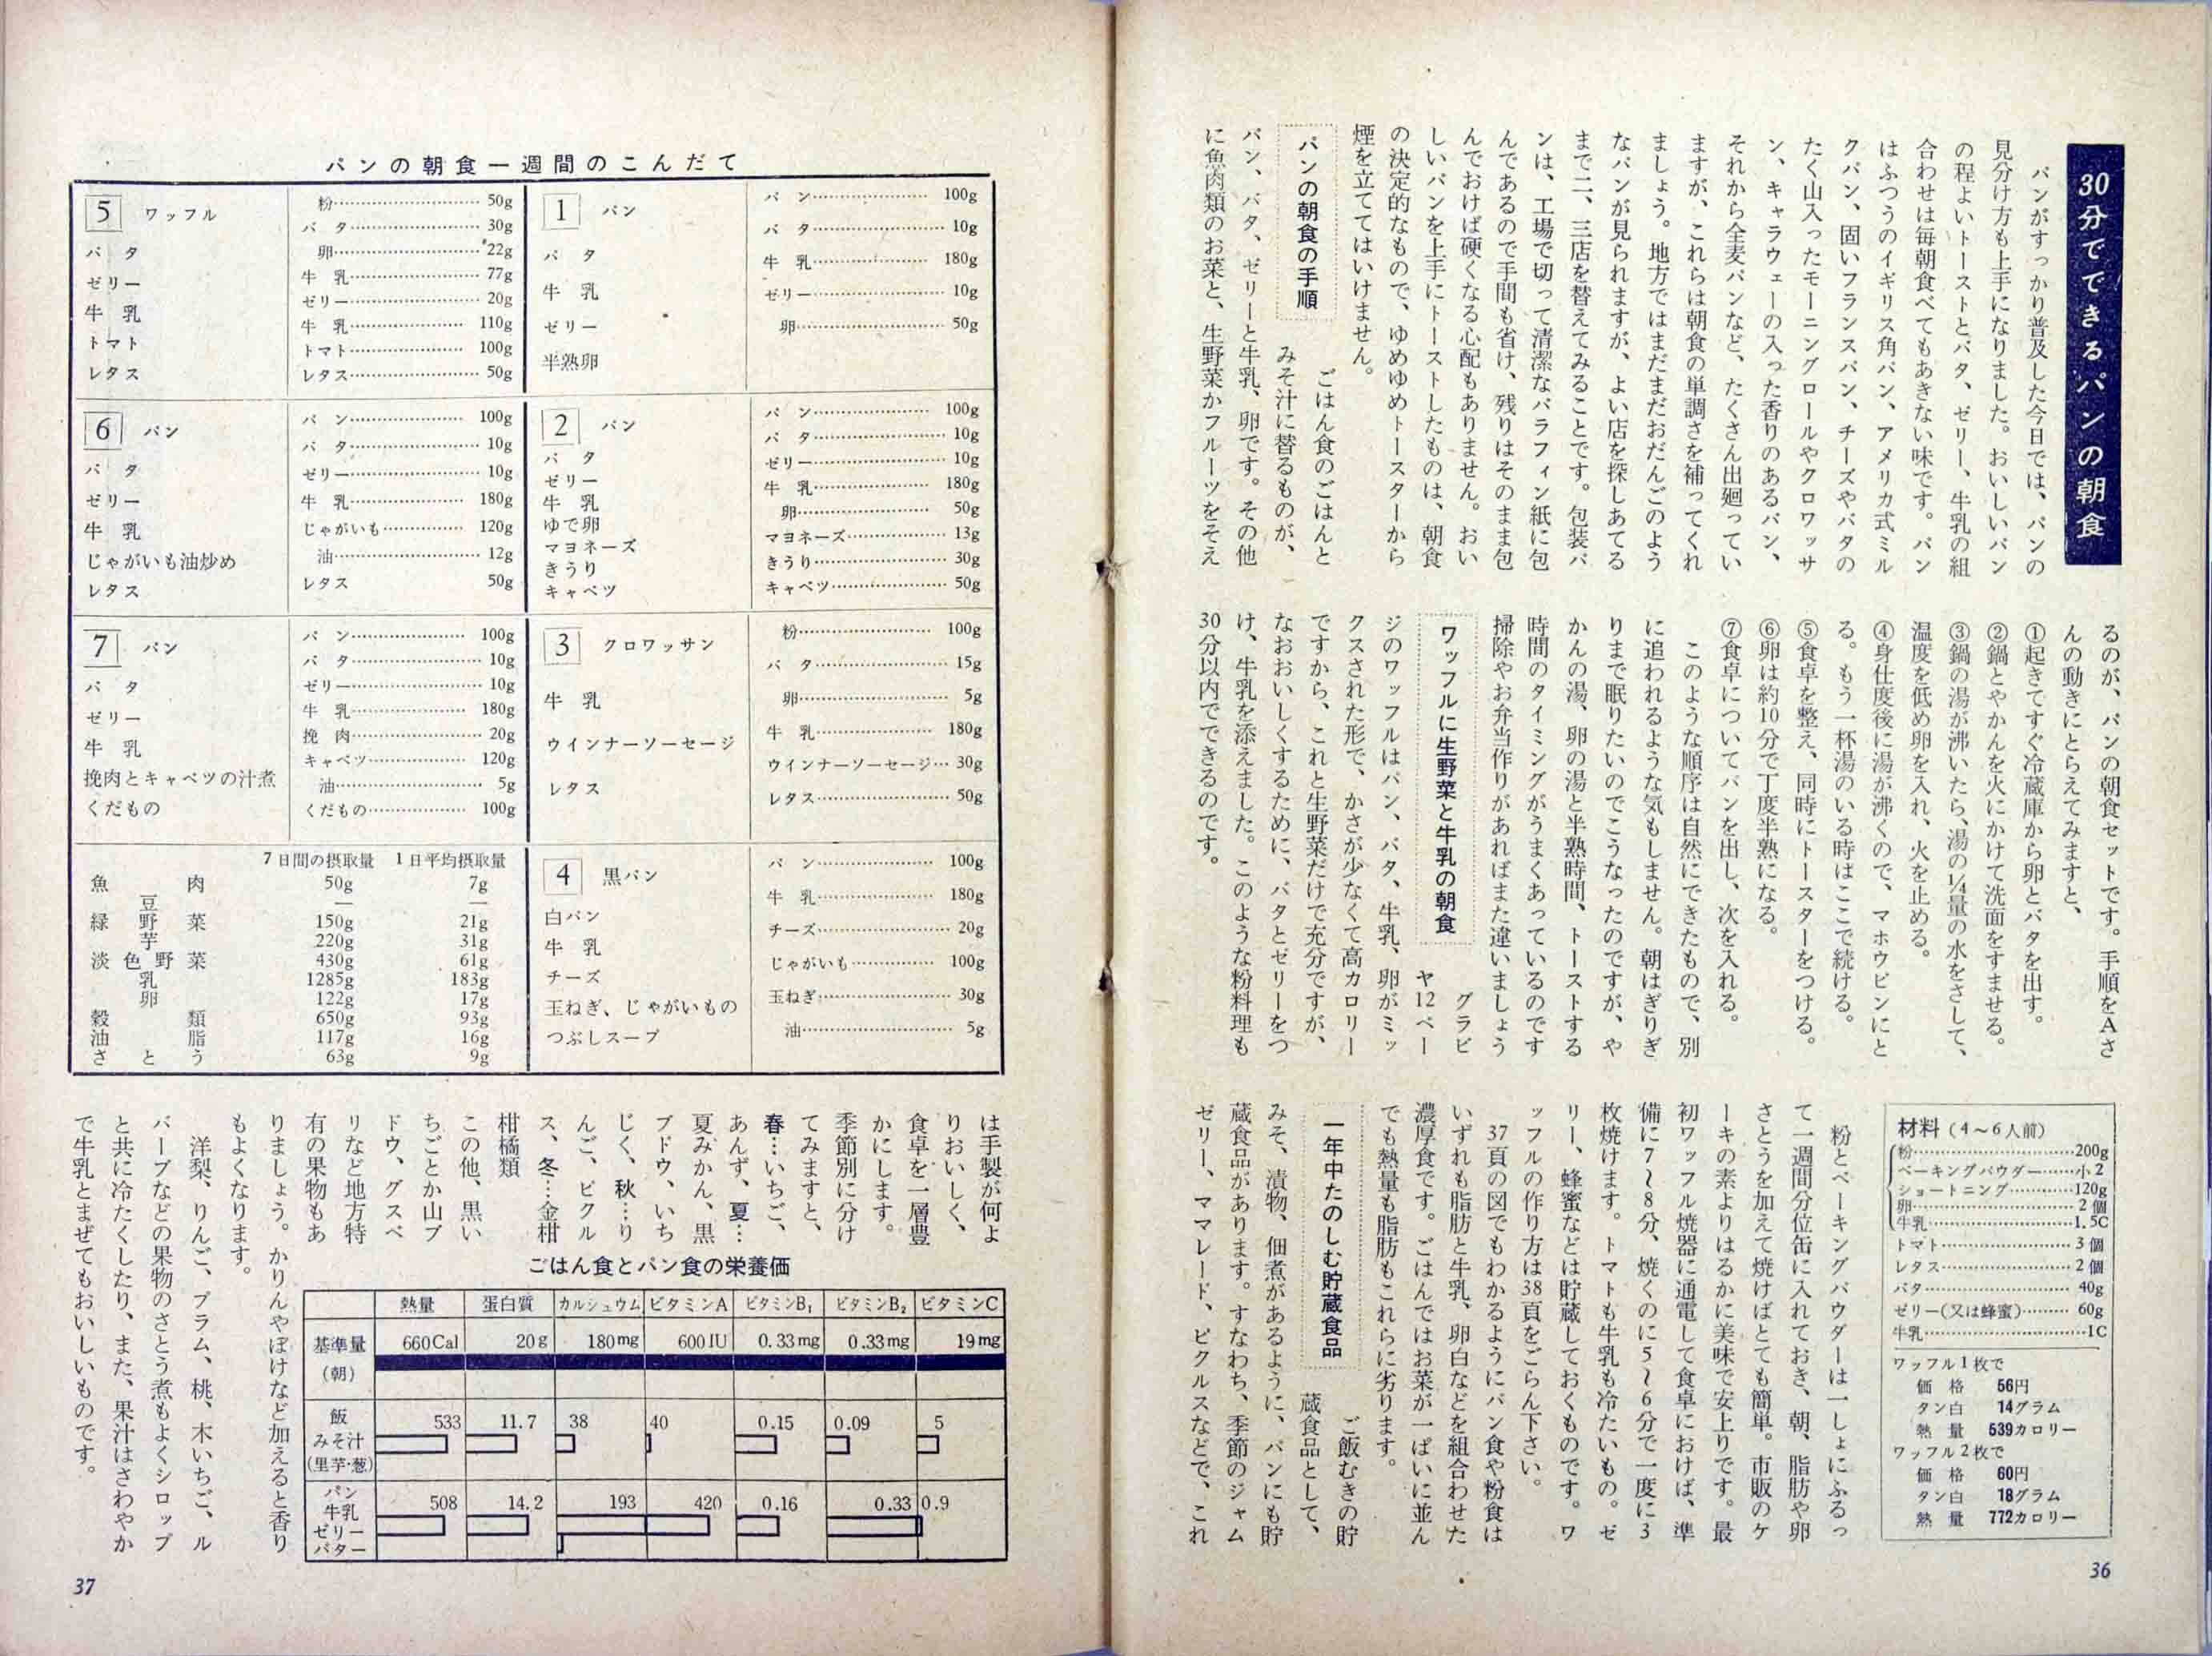 30分でできるパンの朝食
パンがすっかり普及した今日では、パンの
見分け方も上手になりました。おいしいパン
の程よいトーストとバタ、ゼリー、牛乳の組
合わせは毎朝食べてもあきない味です。パン
はふつうのイギリス角パン、アメリカ式ミル
クパン、固いフランスパン、チーズやバタの
たく山入ったモーニングロールやクロワッサ
ン、キャラウェーの入った香りのあるパン、
それから全麦パンなど、たくさん出廻ってい
ますが、これらは朝食の単調さを補ってくれ
ましょう。地方ではまだまだおだんごのよう
なパンが見られますが、よい店を探しあてる
まで二、三店を替えてみることです。包装パ
ンは、工場で切って清潔なパラフィン紙に包
んであるので手間も省け、残りはそのまま包
んでおけば硬くなる心配もありません。おい
しいパンを上手にトーストしたものは、朝食
の決定的なもので、ゆめゆめトースターから
煙を立ててはいけません。
パンの朝食の手順
ごはん食のごはんと
みそ汁に替るものが、
パン、バタ、ゼリーと牛乳、卵です。その他
に魚肉類のお菜と、生野菜かフルーツをそえ
るのが、パンの朝食セットです。手順をAさ
んの動きにとらえてみますと、
①起きてすぐ冷蔵庫から卵とバタを出す。
②鍋とやかんを火にかけて洗面をすませる。
③鍋の湯が沸いたら、湯の¼量の水をさして、
温度を低め卵を入れ、火を止める。
④身仕度後に湯が沸くので、マホウビンにと
る。もう一杯湯のいる時はここで続ける。
⑤食卓を整え、同時にトースターをつける。
⑥卵は約10分で丁度半熟になる。
⑦食卓についてパンを出し、次を入れる。
このような順序は自然にできたもので、別
に追われるような気もしません。朝はぎりぎ
りまで眠りたいのでこうなったのですが、や
かんの湯、卵の湯と半熟時間、トーストする
時間のタイミングがうまくあっているのです
掃除やお弁当作りがあればまた違いましょう
ワッフルに生野菜と牛乳の朝食
グラビ
ヤ12ペー
ジのワッフルはパン、バタ、牛乳、卵がミッ
クスされた形で、かさが少なくて高カロリー
ですから、これと生野菜だけで充分ですが、
なおおいしくするために、バタとゼリーをつ
け、牛乳を添えました。このような粉料理も
30分以内でできるのです。
材料(4〜6人前)
粉……200g
ベーキングパウダー……小2
ショートニング……120g
卵……2個
牛乳……1.5C
トマト……3個
レタス……2個
バタ……40g
ゼリー(又は蜂蜜)……60g
牛乳……1C
ワッフル1枚で
価格 56円
タン白 14グラム
熱量 539カロリー
ワッフル2枚で
価格 60円
タン白 18グラム
熱量 772カロリー
粉とベーキングパウダーは一しょにふるっ
て一週間分位缶に入れておき、朝、脂肪や卵
さとうを加えて焼けばとても簡単。市販のケ
ーキの素よりはるかに美味で安上りです。最
初ワッフル焼器に通電して食卓におけば、準
備に7〜8分、焼くのに5〜6分で一度に3
枚焼けます。トマトも牛乳も冷たいもの。ゼ
リー、蜂蜜などは貯蔵しておくものです。ワ
ッフルの作り方は38頁をごらん下さい。
37頁の図でもわかるようにパン食や粉食は
いずれも脂肪と牛乳、卵白などを組合わせた
濃厚食です。ごはんではお菜が一ぱいに並ん
でも熱量も脂肪もこれらに劣ります。
一年中たのしむ貯蔵食品
ご飯むきの貯
蔵食品として、
みそ、漬物、佃煮があるように、パンにも貯
蔵食品があります。すなわち、季節のジャム
ゼリー、ママレード、ピクルスなどで、これ
36
パンの朝食一週間のこんだて
1 パン
バタ
牛乳
ゼリー
半熟卵
パン……100g
バタ……10g
牛乳……180g
ゼリー……10g
卵……50g
2 パン
バタ
ゼリー
牛乳
ゆで卵
マヨネーズ
きうり
キャベツ
パン……100g
バタ……10g
ゼリー……10g
牛乳……180g
卵……50g
マヨネーズ……13g
きうり……30g
キャベツ……50g
3 クロワッサン
牛乳
ウインナーソーセージ
レタス
粉……100g
バタ……15g
卵……5g
牛乳……180g
ウインナーソーセージ…30g
レタス……50g
4 黒パン
白パン
牛乳
チーズ
玉ねぎ、じゃがいもの
つぶしスープ
パン……100g
牛乳……180g
チーズ……20g
じゃがいも……100g
玉ねぎ……30g
油……5g
5 ワッフル
バタ
ゼリー
牛乳
トマト
レタス
粉……50g
バタ……30g
卵……22g
牛乳……77g
ゼリー……20g
牛乳……110g
トマト……100g
レタス……50g
6 パン
バタ
ゼリー
牛乳
じゃがいも油炒め
レタス
パン……100g
バタ……10g
ゼリー……10g
牛乳……180g
じゃがいも……120g
油……12g
レタス……50g
7 パン
バタ
ゼリー
牛乳
挽肉とキャベツの汁煮
くだもの
パン……100g
バタ……10g
ゼリー……10g
牛乳……180g
挽肉……20g
キャベツ……120g
油……5g
くだもの……100g
7日間の摂取量 1日平均摂取量
魚肉 50g 7g
豆 — —
緑野菜 150g 21g
芋 220g 31g
淡色野菜 430g 61g
乳 1285g 183g
卵 122g 17g
穀類 650g 93g
油脂 117g 16g
さとう 63g 9g
は手製が何よ
りおいしく、
食卓を一層豊
かにします。
季節別に分け
てみますと、
春…いちご、
あんず、夏…
夏みかん、黒
ブドウ、いち
じく、秋…り
んご、ピクル
ス、冬…金柑
柑橘類
この他、黒い
ちごとか山ブ
ドウ、グスベ
リなど地方特
有の果物もあ
りましょう。かりんやぼけなど加えると香り
もよくなります。
洋梨、りんご、プラム、桃、木いちご、ル
バーブなどの果物のさとう煮もよくシロップ
と共に冷たくしたり、また、果汁はさわやか
で牛乳とまぜてもおいしいものです。
ごはん食とパン食の栄養価
熱量 蛋白質 カルシュウム ビタミンA ビタミンB₁ ビタミンB₂ ビタミンC
基準量(朝) 660Cal 20g 180mg 600IU 0.33mg 0.33mg 19mg
飯 みそ汁(里芋・葱) 533 11.7 38 40 0.15 0.09 5
パン 牛乳 ゼリー バター 508 14.2 193 420 0.16 0.33 0.9
37